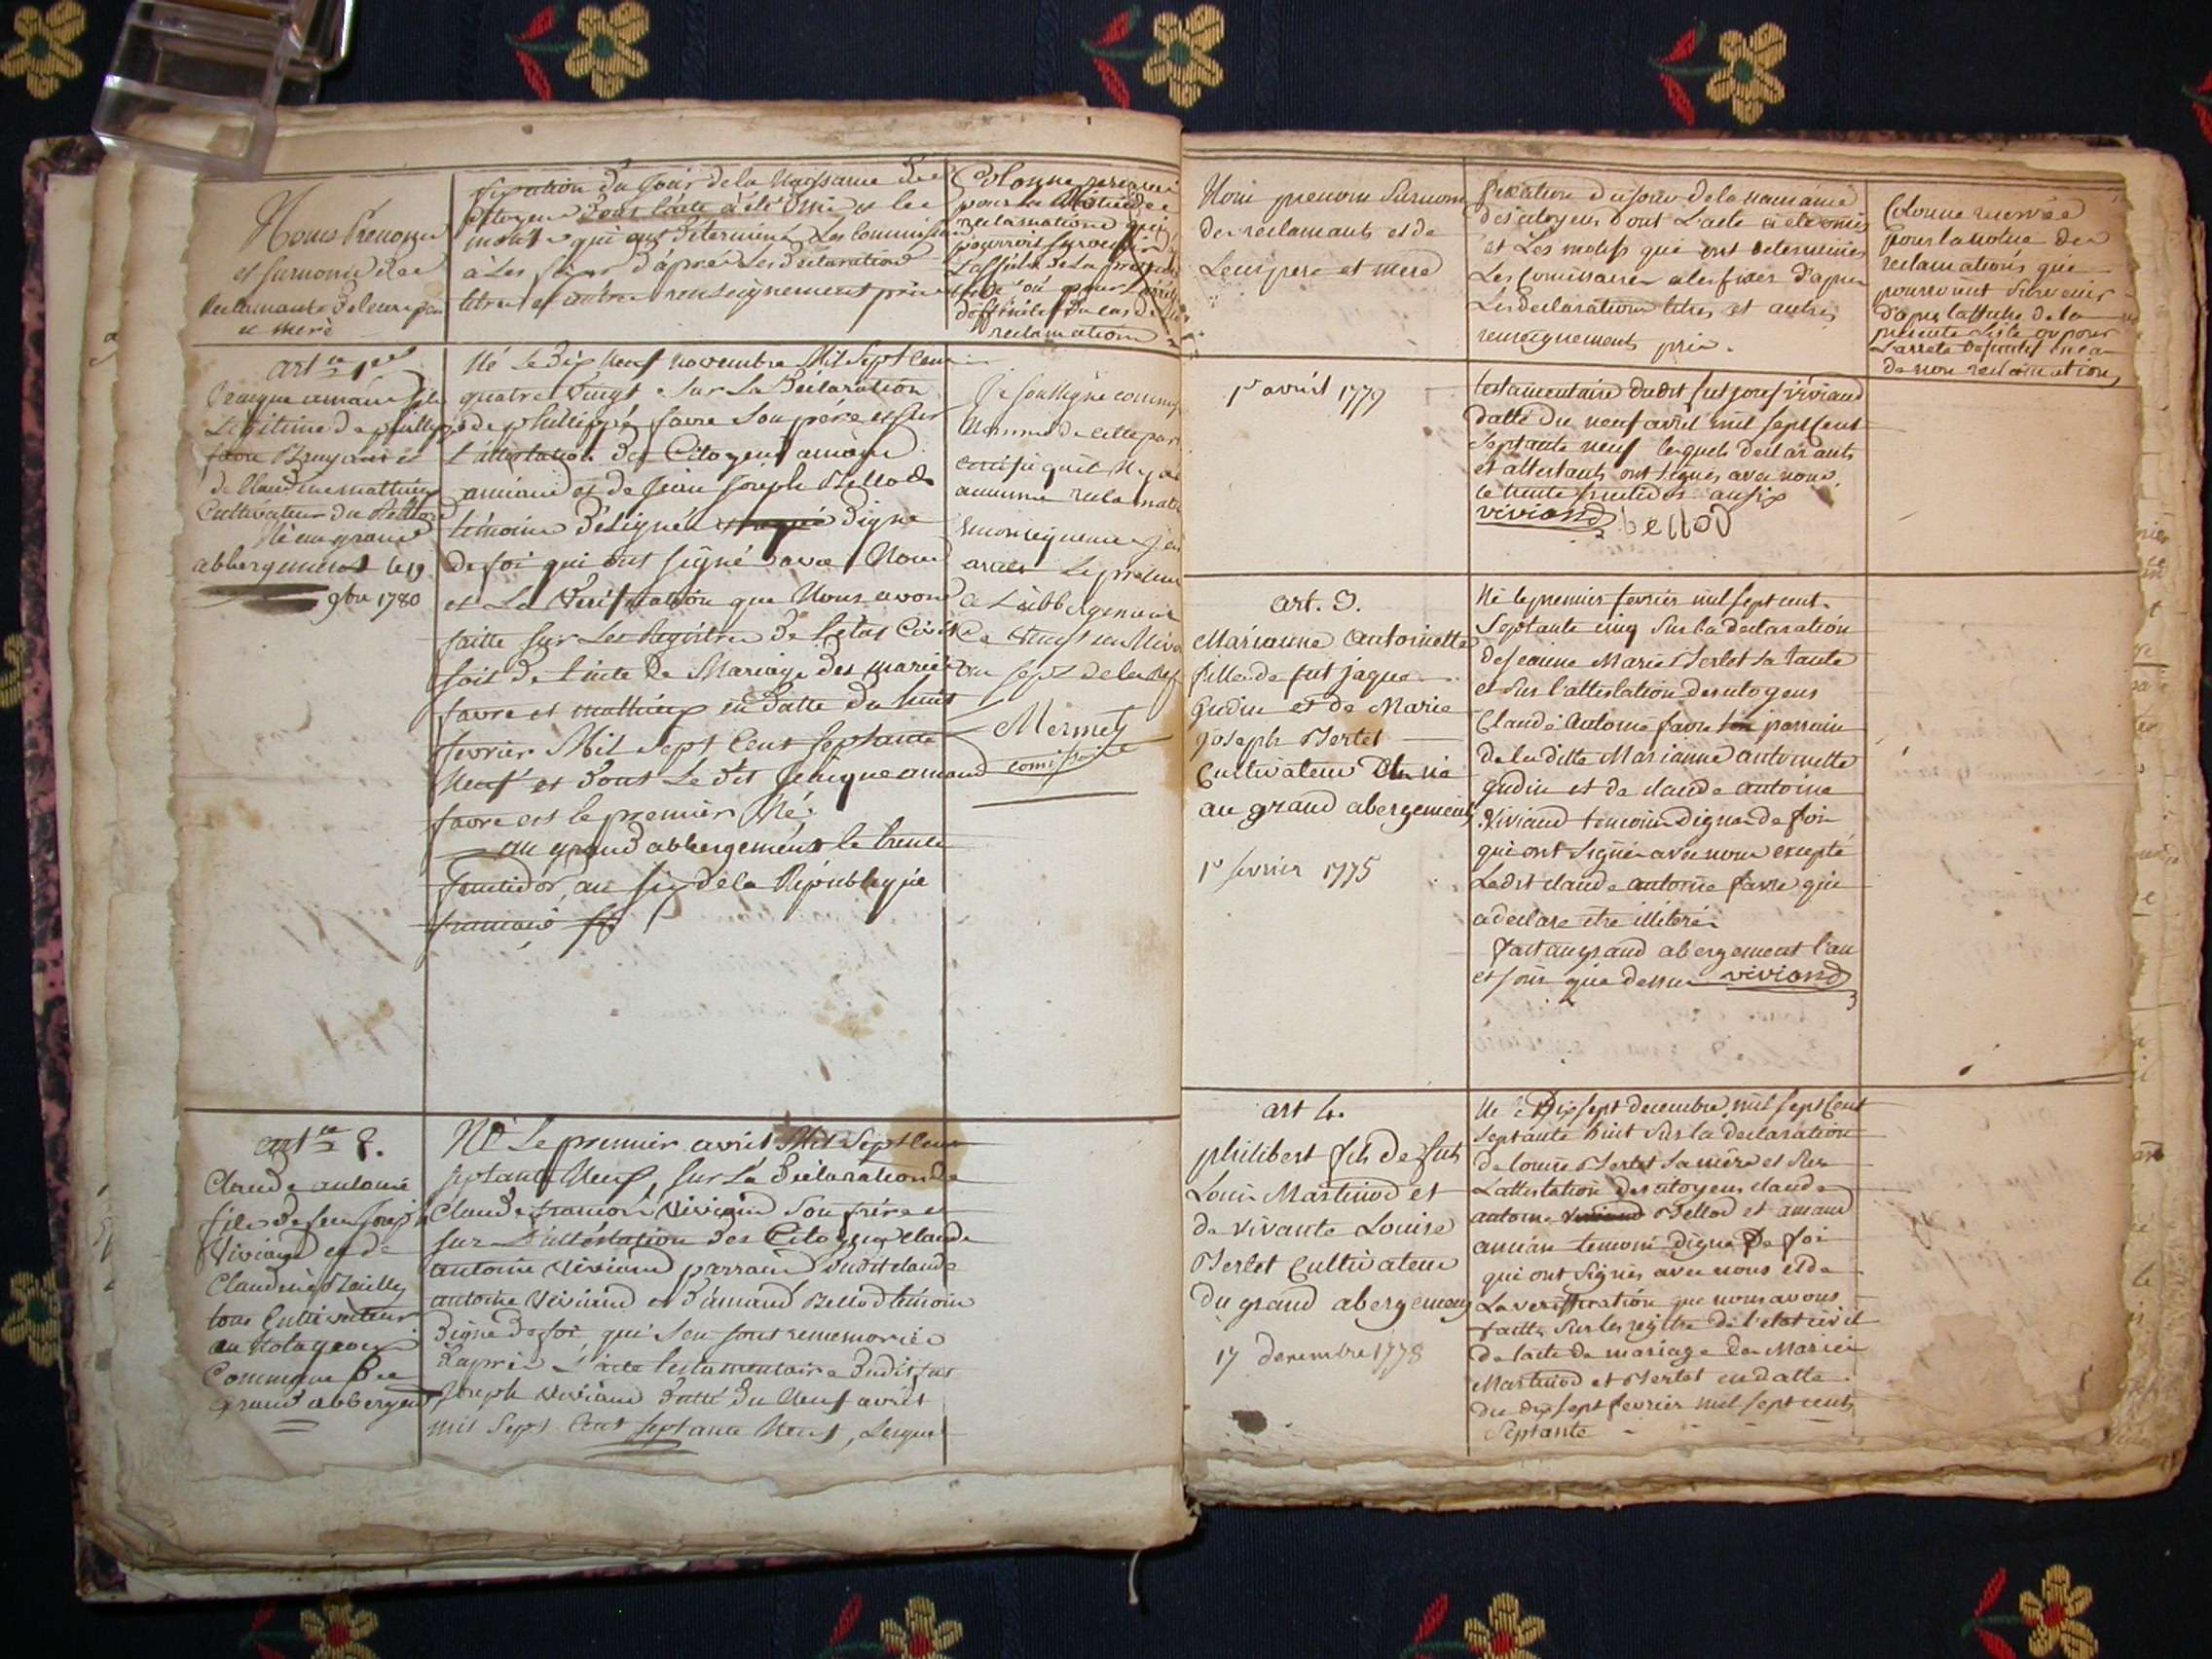 Noms Prénoms
et surnoms des
Reclamants de leurs père
et mere
fixation du jour de la Naissance des
Citoyens dont l'acte a été omis et les
motifs qui ont determiné les Commissaires
à les fixer d'après les déclarations
titres et autres renseignements pris
Colonne reservée
pour la Notice des
reclamations qui
pourroient survenir
l'affiche de la presente
liste ou pour l'arrêté
définitif en cas de non
reclamation
art.le 1er
fils
Légitime de philippe
favre et
de Claudine mathieux
Cultivateur du
Né au grand
abbergement le 19
9bre 1780
Né le dix neuf novembre Mil Sept Cent
quatre Vingt Sur La Déclaration
de phillippe favre Son père et sur
l'attestation des Citoyens amand
ancian et de Jean Joseph Bellod
témoins désignés digne
de foi qui ont signé avec Nous
et La Verification que Nous avons
faitte sur Les Registres de l'etat Civil
soit de l'acte de Mariage des mariés
favre et mathieux en datte du huit
fevrier Mil Sept Cent Septante
Neuf et dont Le dit amand
favre est le premier Né.
au grand abbergement le trente
fructidor, an six de la République
francaise
Je soussigné commis
Nommé de cette par
certifie qu'il n'y a
aucune reclamation
en consequence j'ai
arrêté Le présent
a L'abbergement
Ce Vingt un Nivose
an sept de la Rep
Mermety
comissaire
art.le 2.
Claude antoine
fils de feu Joseph
Viviand et de
Claudine Mailly
tous Cultivateur
au
Commune du
grand abbergement
Né Le premier avril Mil Sept Cent
septante Neuf, sur La Déclaration de
Claude francois Viviand Son frère et
sur L'attestation des Citoyens claude
antoine Viviand parrain dudit claude
antoine Viviand et d'amand Bellod témoins
digne de foi qui s'en sont rememoriés
d'après L'acte testamentaire dudit fut
Joseph Viviand datté du Neuf avril
mil Sept Cent Septante Neuf, Lesquel
Nom prenom Surnom
des reclamants et de
Leurs pere et mere
fixation du jour de la naissance
des citoyens dont L'acte a été omis
et Les motifs qui ont determinés
Les Comissaires a les fixer d'apres
Les declarations titres et autres
renseignements pris.
Colonne reservée
pour la notice des
reclamations qui
pourroient Survenir
d'apres l'affiche de la
presente Liste ou pour
L'arrete definitif en cas
de non reclamation
1er avril 1779
testamentaire dudit fut Josef viviand
datté du neuf avril mil sept Cent
Septante neuf lesquels declarants
et attestants ont signés avec nous
le trente fructidor an six
viviand bellod
art. 3.
Marianne Antoinette
fille de fut jaque
Gudin et de Marie
Joseph Bertet
Cultivateur
au grand abergement
1er fevrier 1775
Né le premier fevrier mil sept cent
Septante cinq Sur la declaration
de jeanne Marie Bertet sa tante
et Sur l'attestation des citoyens
Claude Antoine favre parrain
de la ditte Marianne antoinette
gudin et de claude antoine
Viviand temoins dignes de foi
qui ont Signés avec nous excepté
Ledit claude antoine favre qui
a declare etre illiteré
fait au grand abergement l'an
et jour que dessus viviand
art 4.
philibert fils de fut
Louis Martinod et
de vivante Louise
Bertet Cultivateur
du grand abergement
17 decembre 1778
Né le Dix sept decembre mil sept Cent
Septante huit Sur la declaration
de louise Bertet sa mére et Sur
L'attestation des citoyens claude
antoine viviand Bellod et amand
ancian temoins digne De foi
qui ont Signés avec nous et de
La verification que nous avons
faitte Sur les registre de l'etat civil
de l'acte de mariage des Mariés
Martinod et Bertet en datte
du dix sept fevrier mil sept cent
Septante